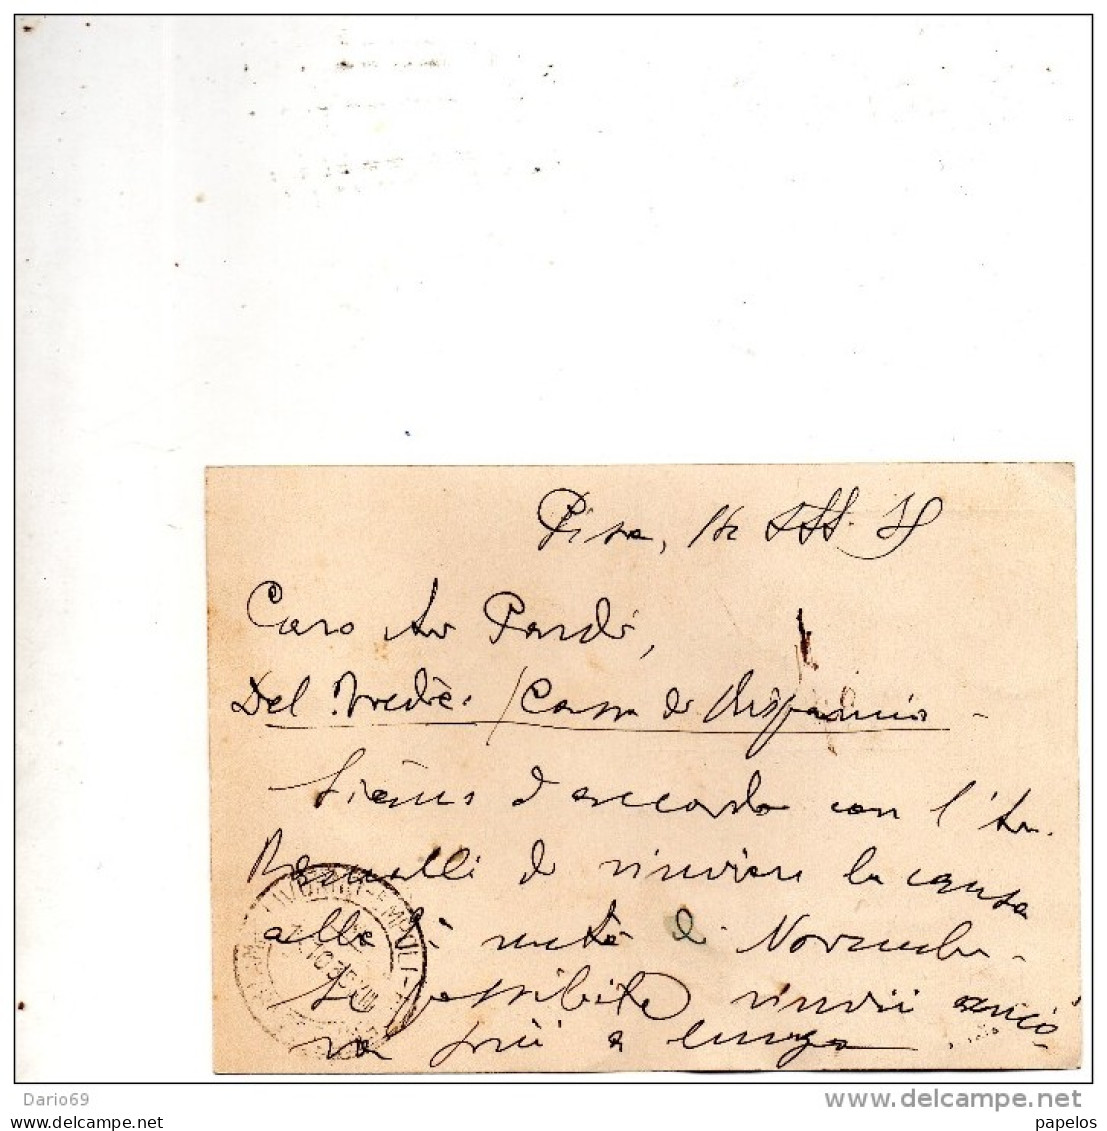 Pisa, 35
Caro Av Pardi,
Del / Cassa di Risparmio -
Siamo d'accordo con l'Av.
di rinviare la causa
alla 1ª metà di Novembre -
Se possibile rinvii anco-
ra più a lungo
www.delcampe.net
Dario69
papelos